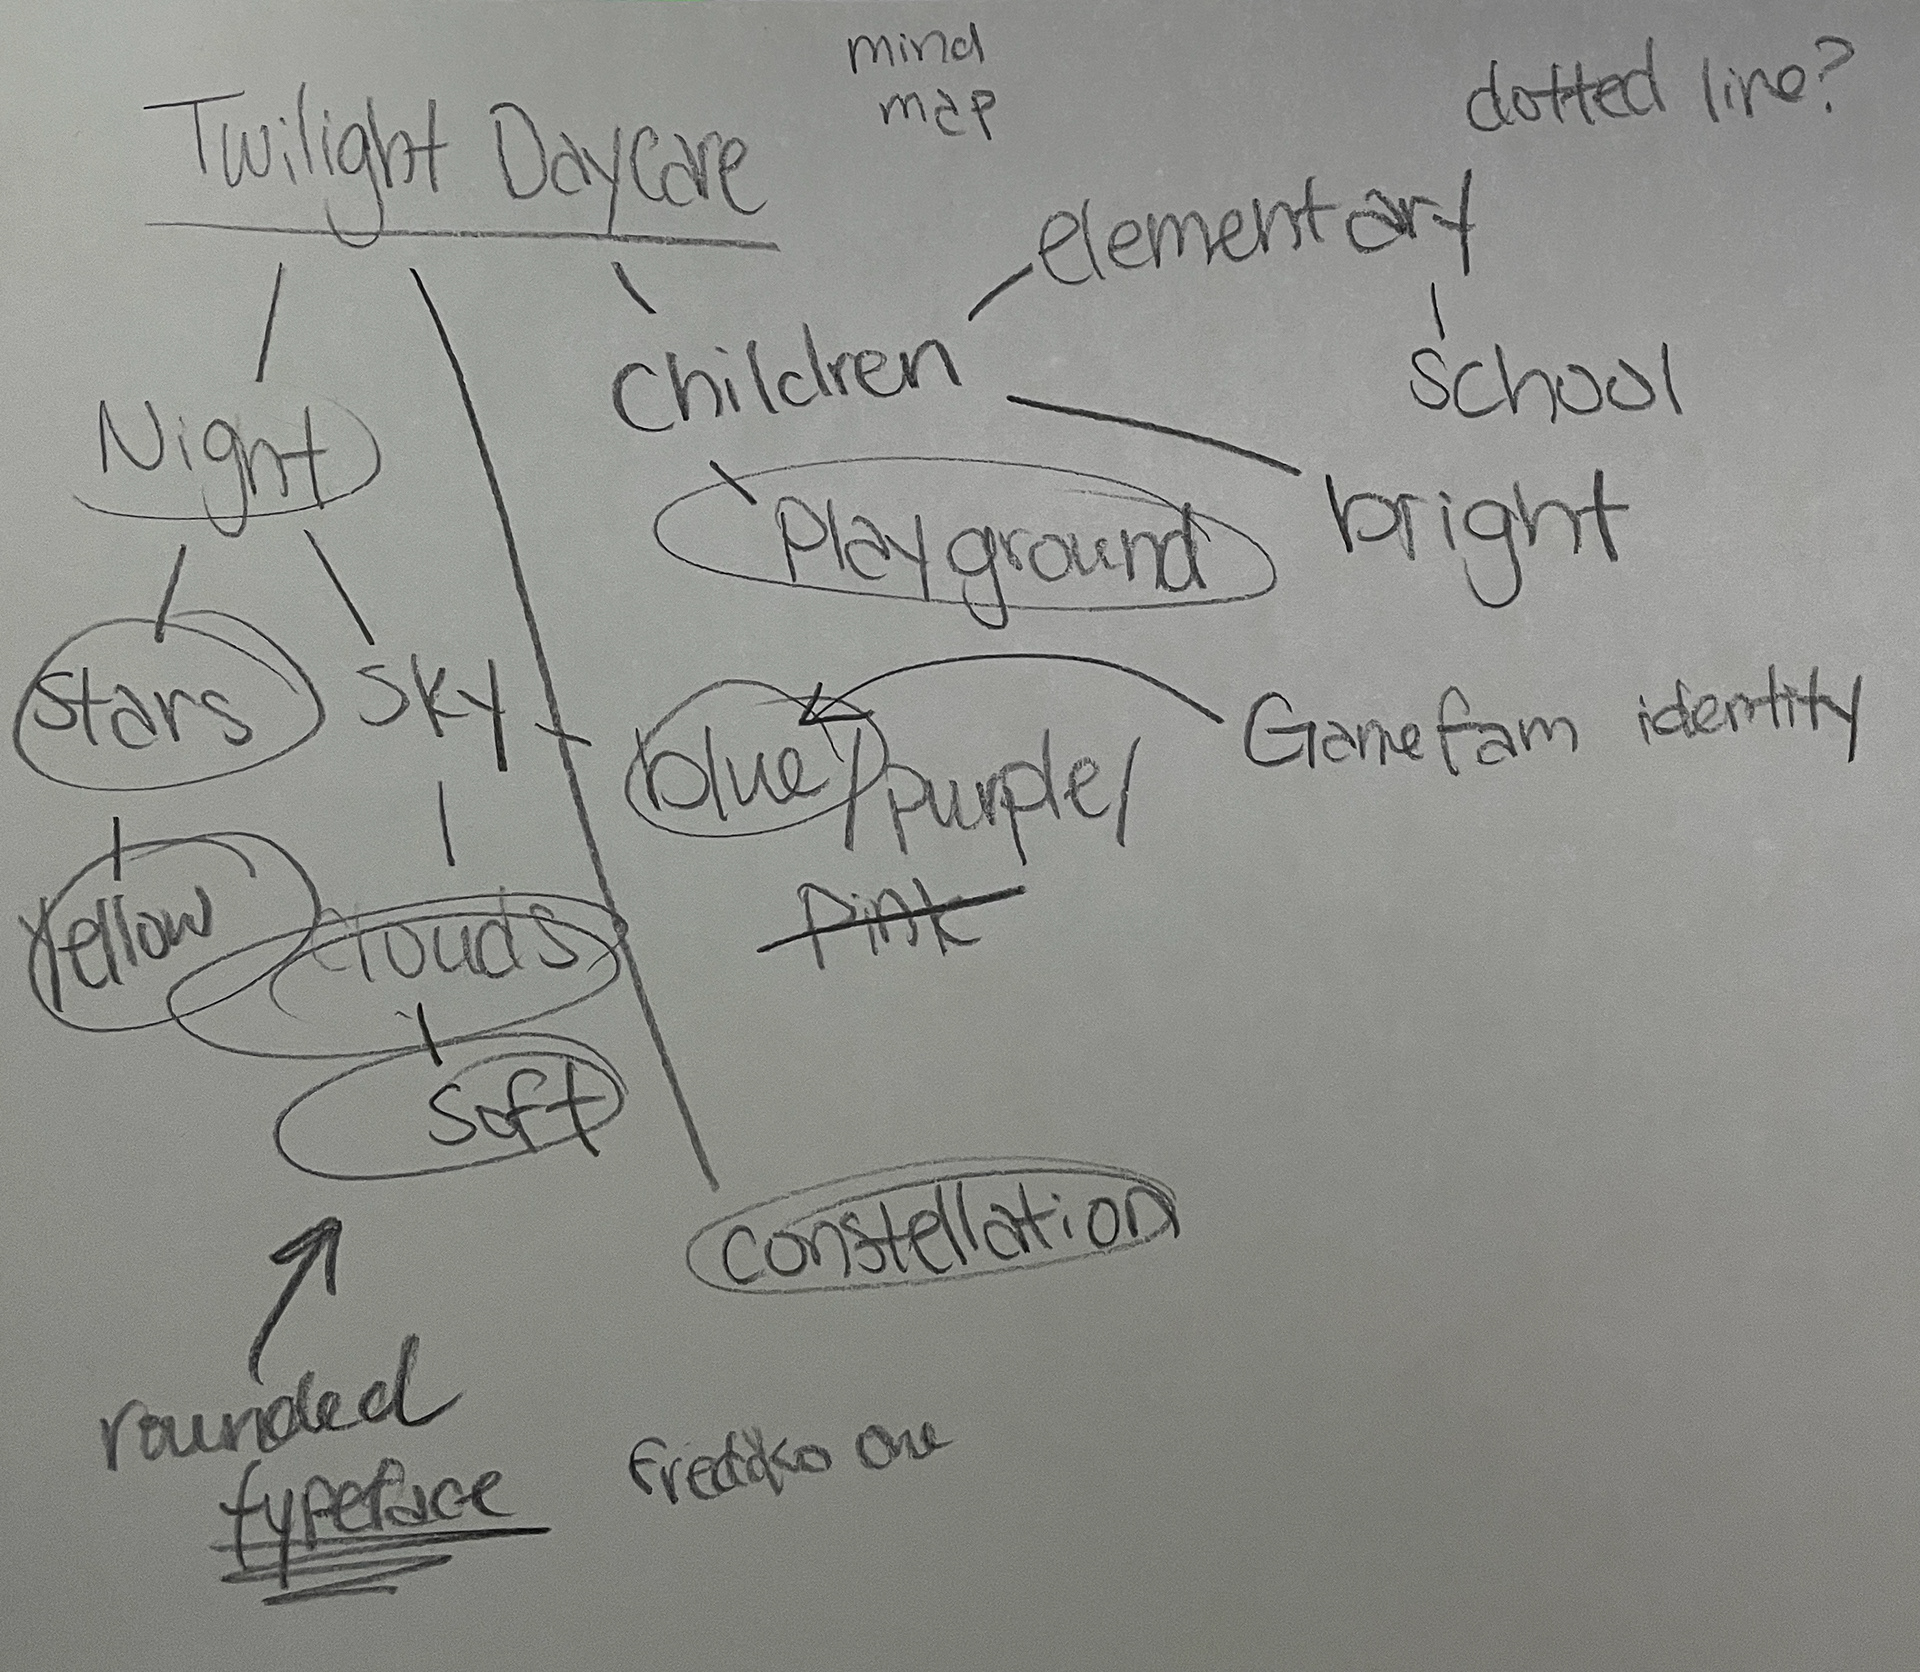 mind
map
dotted line?
Twilight Daycare
elementary
children
school
Night
playground
bright
stars
sky
blue/purple/
Gamefam identity
yellow
clouds
pink
soft
constellation
rounded
typeface
One